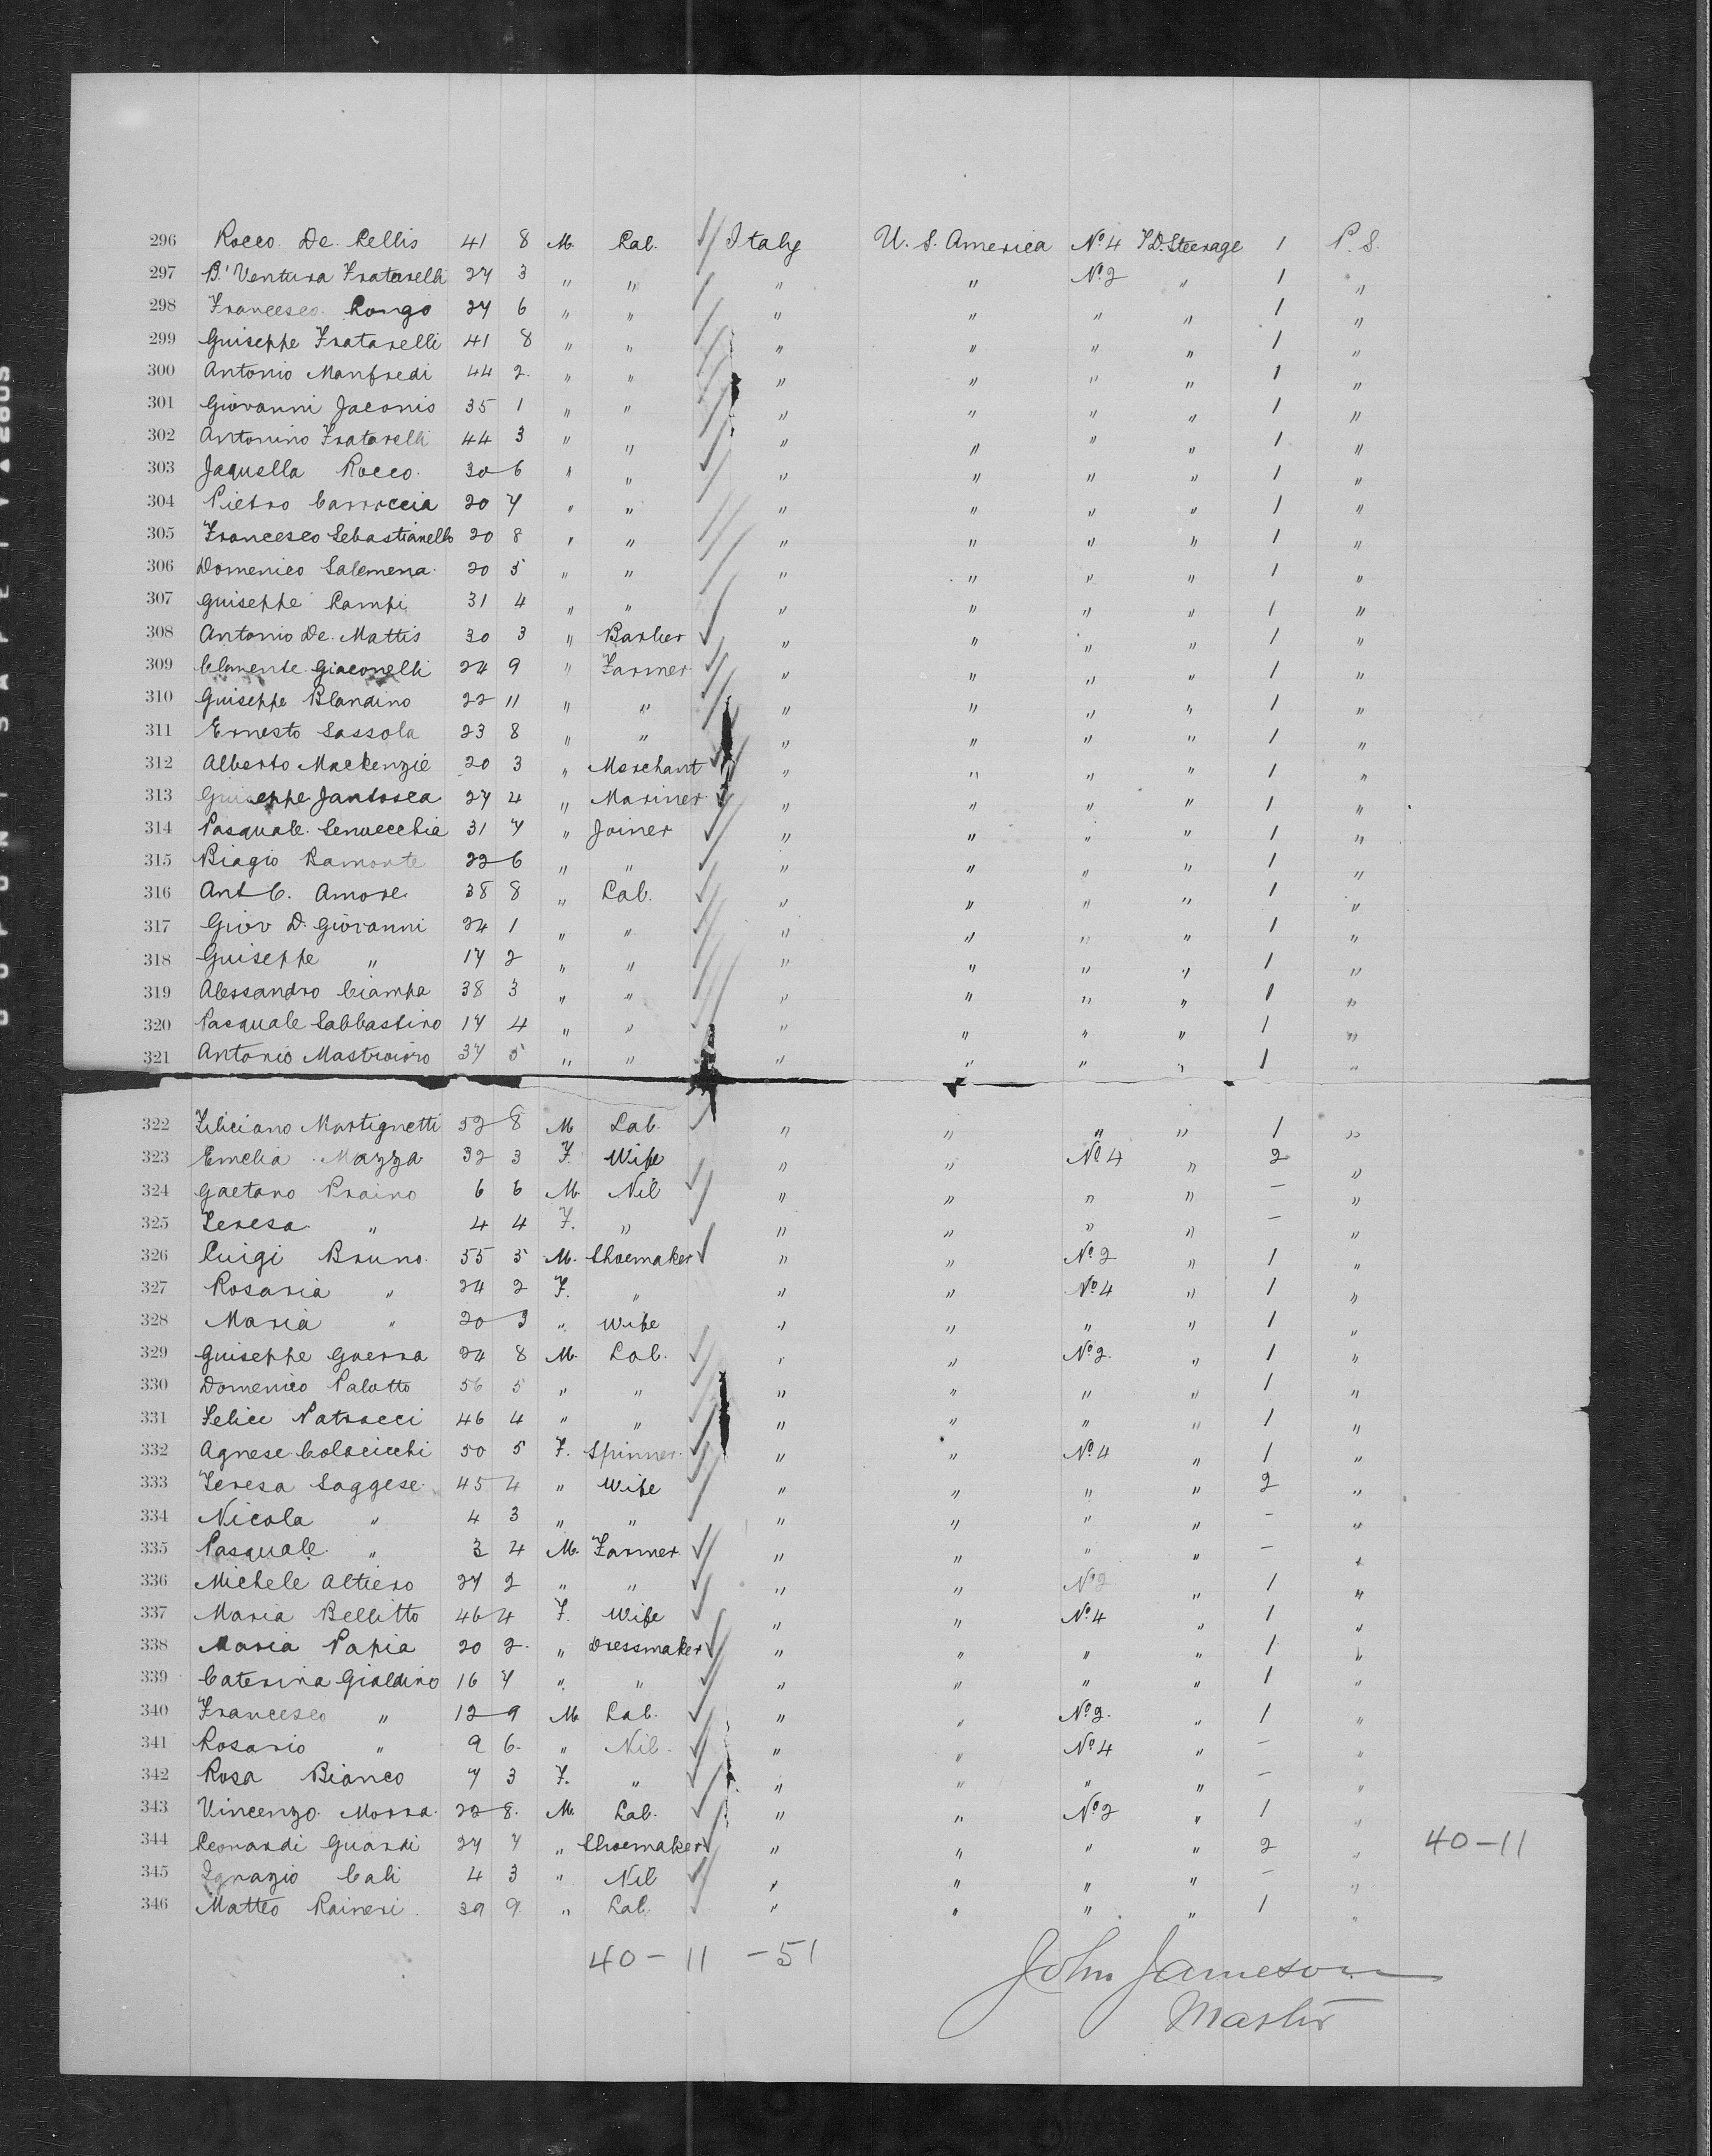 296 Rocco De Lellis 41 8 M. Lab. Italy U. S. America No 4 T.D. Steerage 1 P. S.
297 B. Ventura Fratarelli 27 3 " " " " No 2 " 1 "
298 Francesco Longo 27 6 " " " " " " 1 "
299 Guiseppe Fratarelli 41 8 " " " " " " 1 "
300 Antonio Manfredi 44 2 " " " " " " 1 "
301 Giovanni Jaconis 35 1 " " " " " " 1 "
302 Antonino Fratarelli 44 3 " " " " " " 1 "
303 Jaquella Rocco 30 6 " " " " " " 1 "
304 Pietro 20 7 " " " " " " 1 "
305 Francesco Sebastianello 20 8 " " " " " " 1 "
306 Domenico Salemena 20 5 " " " " " " 1 "
307 Guiseppe Rampi 31 4 " " " " " " 1 "
308 Antonio De Mattis 30 3 " Barber " " " " 1 "
309 Clemente Giaconelli 24 9 " Farmer " " " " 1 "
310 Guiseppe Blandino 22 11 " " " " " " 1 "
311 Ernesto Sassola 23 8 " " " " " " 1 "
312 Alberto Mackenzie 20 3 " Merchant " " " " 1 "
313 Guiseppe Jantosca 27 4 " Mariner " " " " 1 "
314 Pasquale Senuecchia 31 7 " Joiner " " " " 1 "
315 Biagio Ramonte 22 6 " " " " " " 1 "
316 Ant C. Amore 38 8 " Lab. " " " " 1 "
317 Giov D. Giovanni 24 1 " " " " " " 1 "
318 Guiseppe " 17 2 " " " " " " 1 "
319 Alessandro Ciampa 38 3 " " " " " " 1 "
320 Pasquale Sabbastino 17 4 " " " " " " 1 "
321 Antonio 37 5 " " " " " " 1 "
322 Filiciano Martignetti 52 8 M Lab. " " " " 1 "
323 Emelia Mazza 32 3 F. Wife " " No 4 " 2 "
324 Gaetano Praino 6 6 M Nil " " " " — "
325 Teresa " 4 4 F. " " " " " — "
326 Luigi Bruno 55 5 M. Shoemaker " " No 2 " 1 "
327 Rosaria " 24 2 F. " " " No 4 " 1 "
328 Maria " 20 3 " Wife " " " " 1 "
329 Guiseppe Guerra 24 8 M. Lab. " " No 2 " 1 "
330 Domenico Palotto 56 5 " " " " " " 1 "
331 Felice Patracci 46 4 " " " " " " 1 "
332 Agnese Colacicchi 50 5 F. Spinner " " No 4 " 1 "
333 Teresa Saggese 45 4 " Wife " " " " 2 "
334 Nicola " 4 3 " " " " " " - "
335 Pasquale " 3 4 M. Farmer " " " " — "
336 Michele Altiero 27 2 " " " " No 2 " 1 "
337 Maria Bellitto 46 4 F. Wife " " No 4 " 1 "
338 Maria Papia 20 2 " Dressmaker " " " " 1 "
339 Caterina Gialdino 16 7 " " " " " " 1 "
340 Francesco " 12 9 M Lab. " " No 2 " 1 "
341 Rosario " 9 6 " Nil " " No 4 " — "
342 Rosa Bianco 7 3 F. " " " " " — "
343 Vincenzo Morra 22 8 M Lab. " " No 2 " 1 "
344 Leonardi Guardi 27 7 " Shoemaker " " " " 2 " 40-11
345 Ignazio Cali 4 3 " Nil " " " " — "
346 Matteo Raineri 39 9 " Lab. " " " " 1 "
40 - 11 - 51
John Jameson
Master